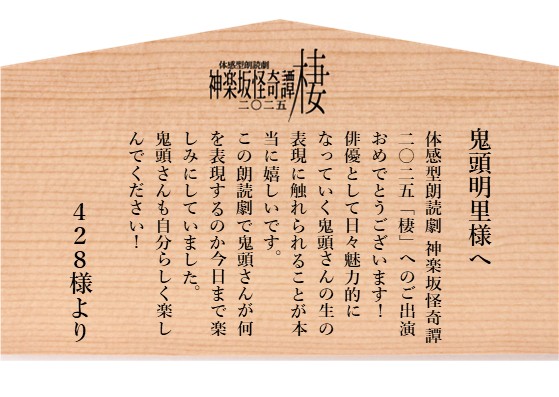 体感型朗読劇
神楽坂怪奇譚
棲
二〇二五
鬼頭明里様へ
体感型朗読劇 神楽坂怪奇譚
二〇二五「棲」へのご出演
おめでとうございます！
俳優として日々魅力的に
なっていく鬼頭さんの生の
表現に触れられることが本
当に嬉しいです。
この朗読劇で鬼頭さんが何
を表現するのか今日まで楽
しみにしていました。
鬼頭さんも自分らしく楽し
んでください！
428様より